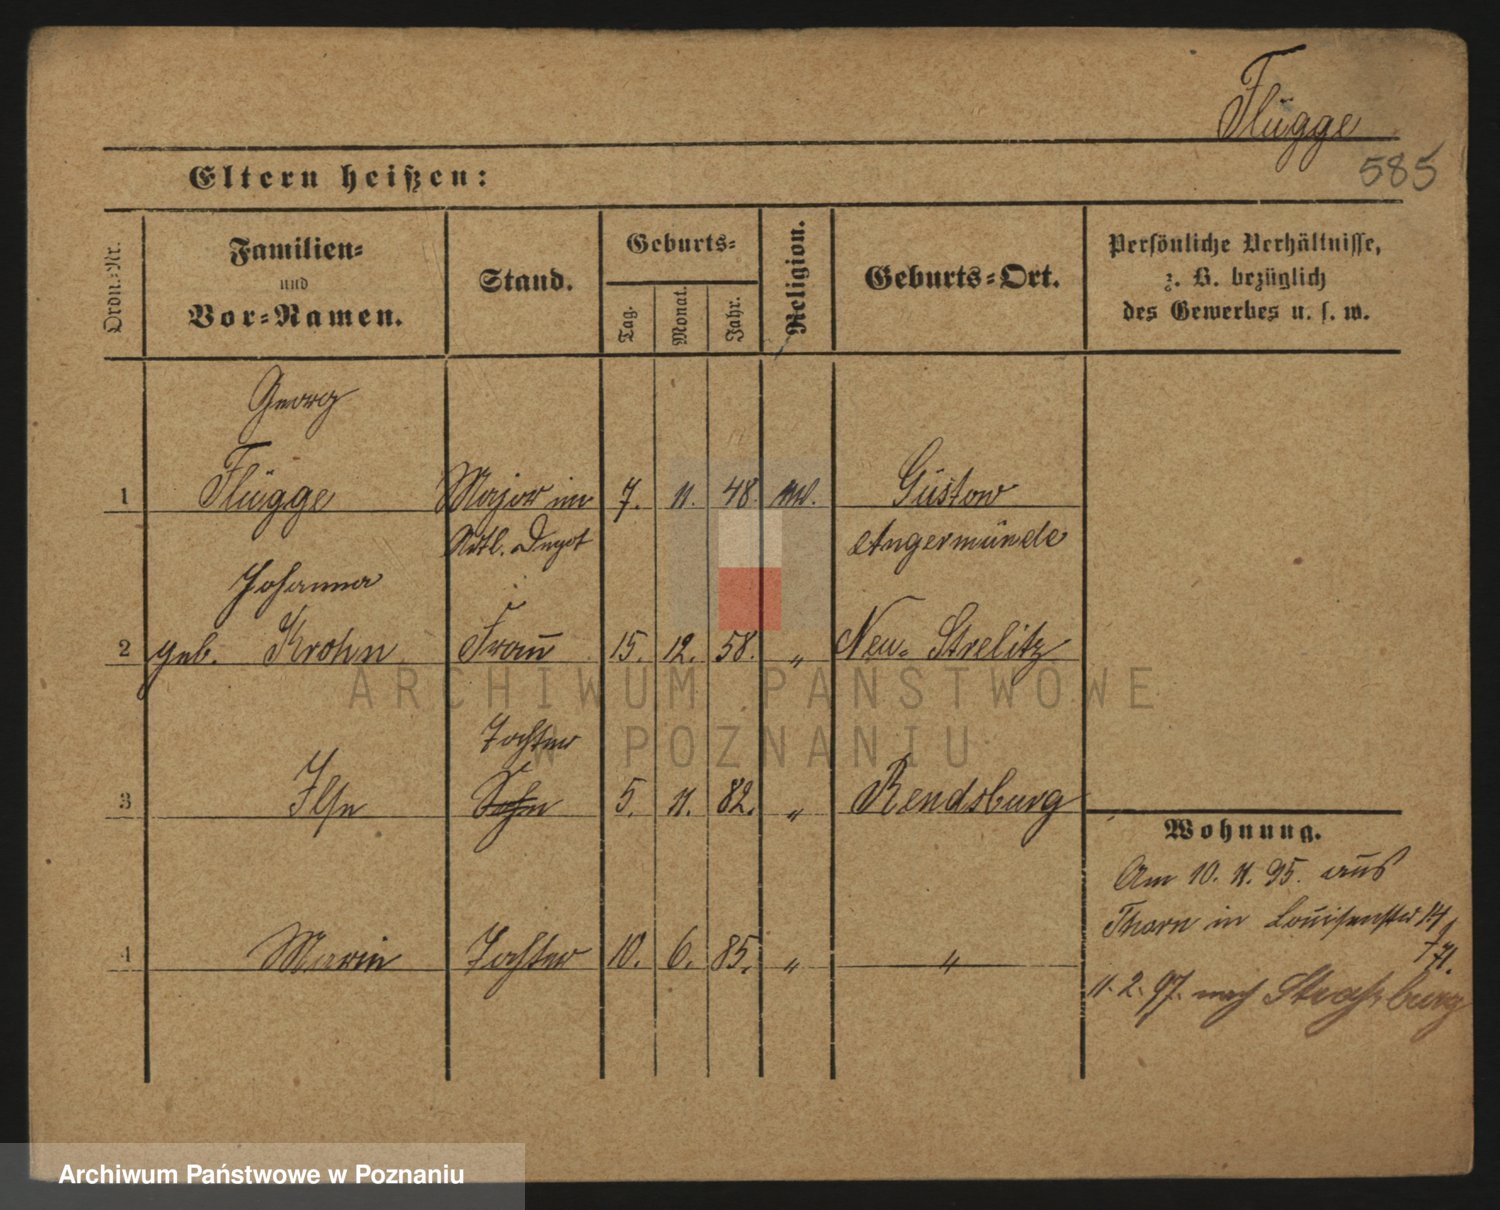 Flügge
585
Eltern heißen:
Ordn.-Nr.
Familien-
und
Vor-Namen.
Stand.
Geburts-
Tag.
Monat.
Jahr.
Religion.
Geburts-Ort.
Persönliche Verhältnisse,
z. B. bezüglich
des Gewerbes u. s. w.
Georg
1 Flügge Major im 7. 11. 48. Güstow
Artl. Depot Angermünde
Johanna
2 geb. Krohn Frau 15. 12. 58. " Neu-Strelitz
Tochter
3 Ilse Sohn 5. 11. 82. " Rendsburg
Wohnung.
Am 10. 11. 95. aus
Thorn in Louisenstr 14
4 Marie Tochter 10. 6. 85. " "
11. 2. 97. nach Straßburg
ARCHIWUM PAŃSTWOWE
W POZNANIU
Archiwum Państwowe w Poznaniu